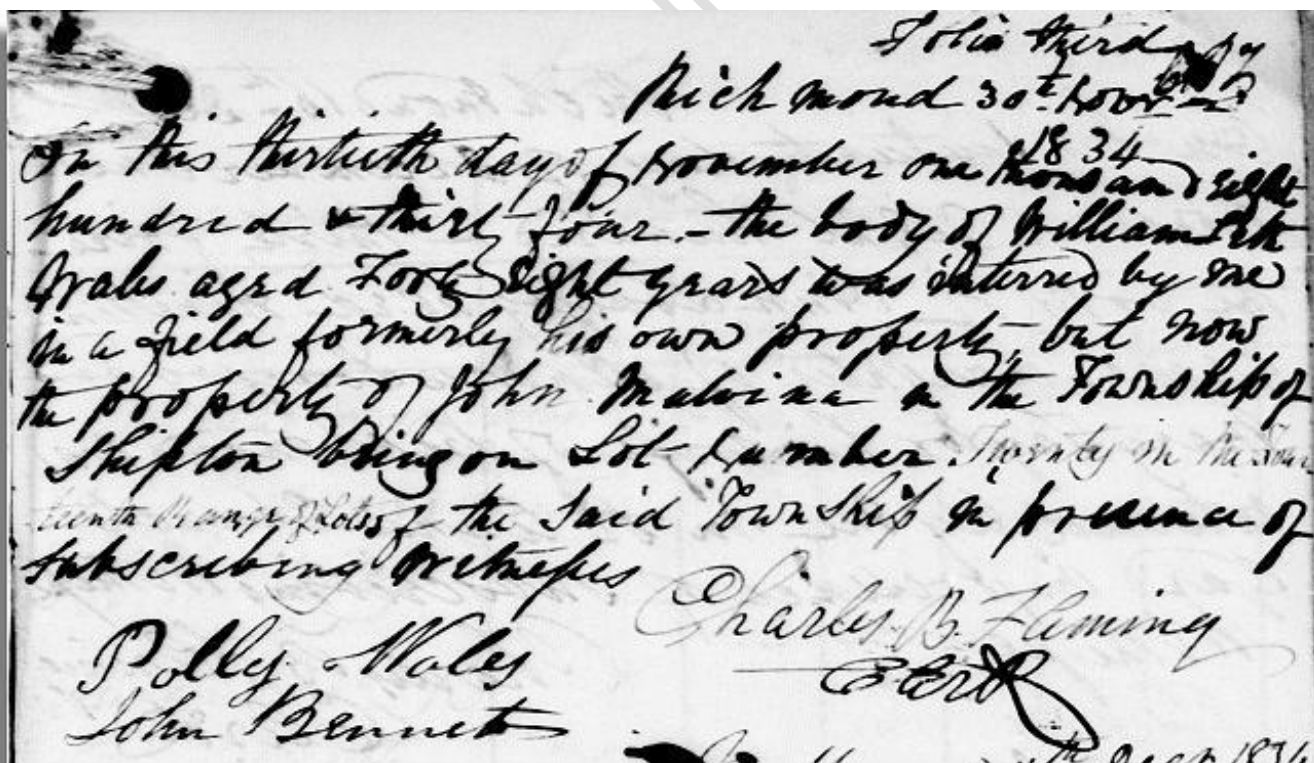 Folio third
Richmond 30th Novr
1834
On this thirtieth day of November one thousand eight
hundred & thirty four - the body of William
Wales aged Forty Eight years was interred by me
in a field formerly his own property, but now
the property of John Malvina in the Township of
Shipton being on Lot Number Twenty in the Four
teenth Range of Lots of the said Township in presence of
subscribing witnesses
Charles B. Fleming
Polly Wales
John Bennett
Decr 1834